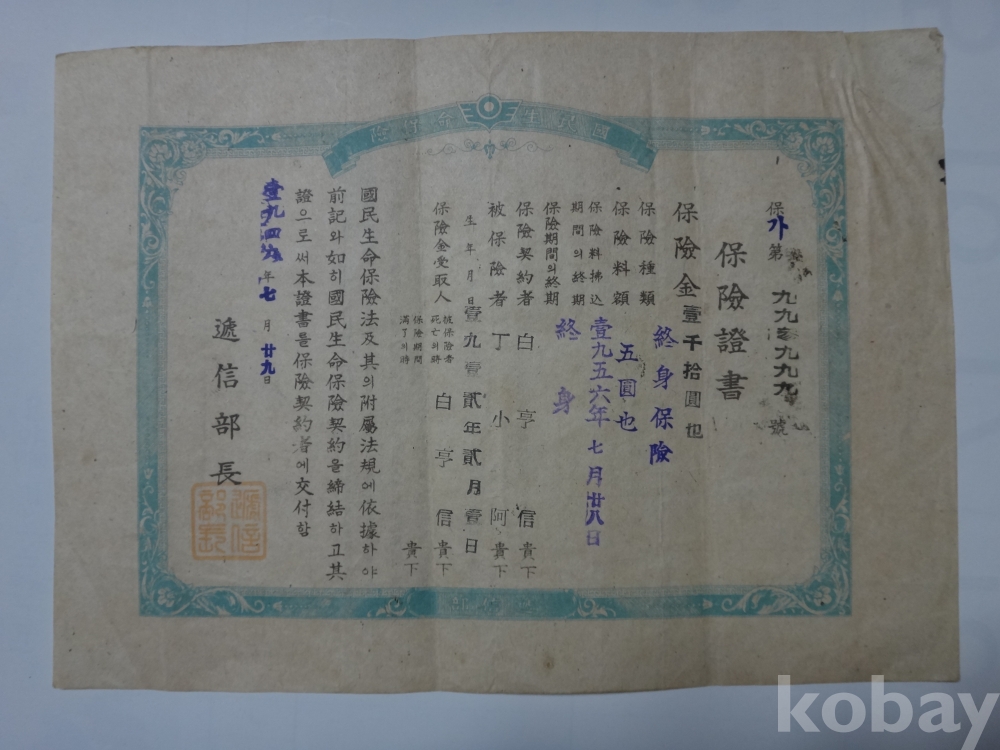 國民生命保險
保가第九九 九九九號
保險證書
保險金壹千拾圓也
保險種類 終身保險
保險料額 五圓也
保險料拂込期間의終期 壹九五六年七月廿八日
保險期間의終期 終身
保險契約者 白亨信 貴下
被保險者 丁小阿 貴下
生年月日 壹九壹貳年貳月壹日
保險金受取人
被保險者死亡의時 白亨信 貴下
保險期間滿了의時 貴下
國民生命保險法及其의附屬法規에依據하야
前記와如히國民生命保險契約을締結하고其
證으로써本證書를保險契約者에交付함
壹九四六年七月廿九日
遞信部長
遞信部長
kobay